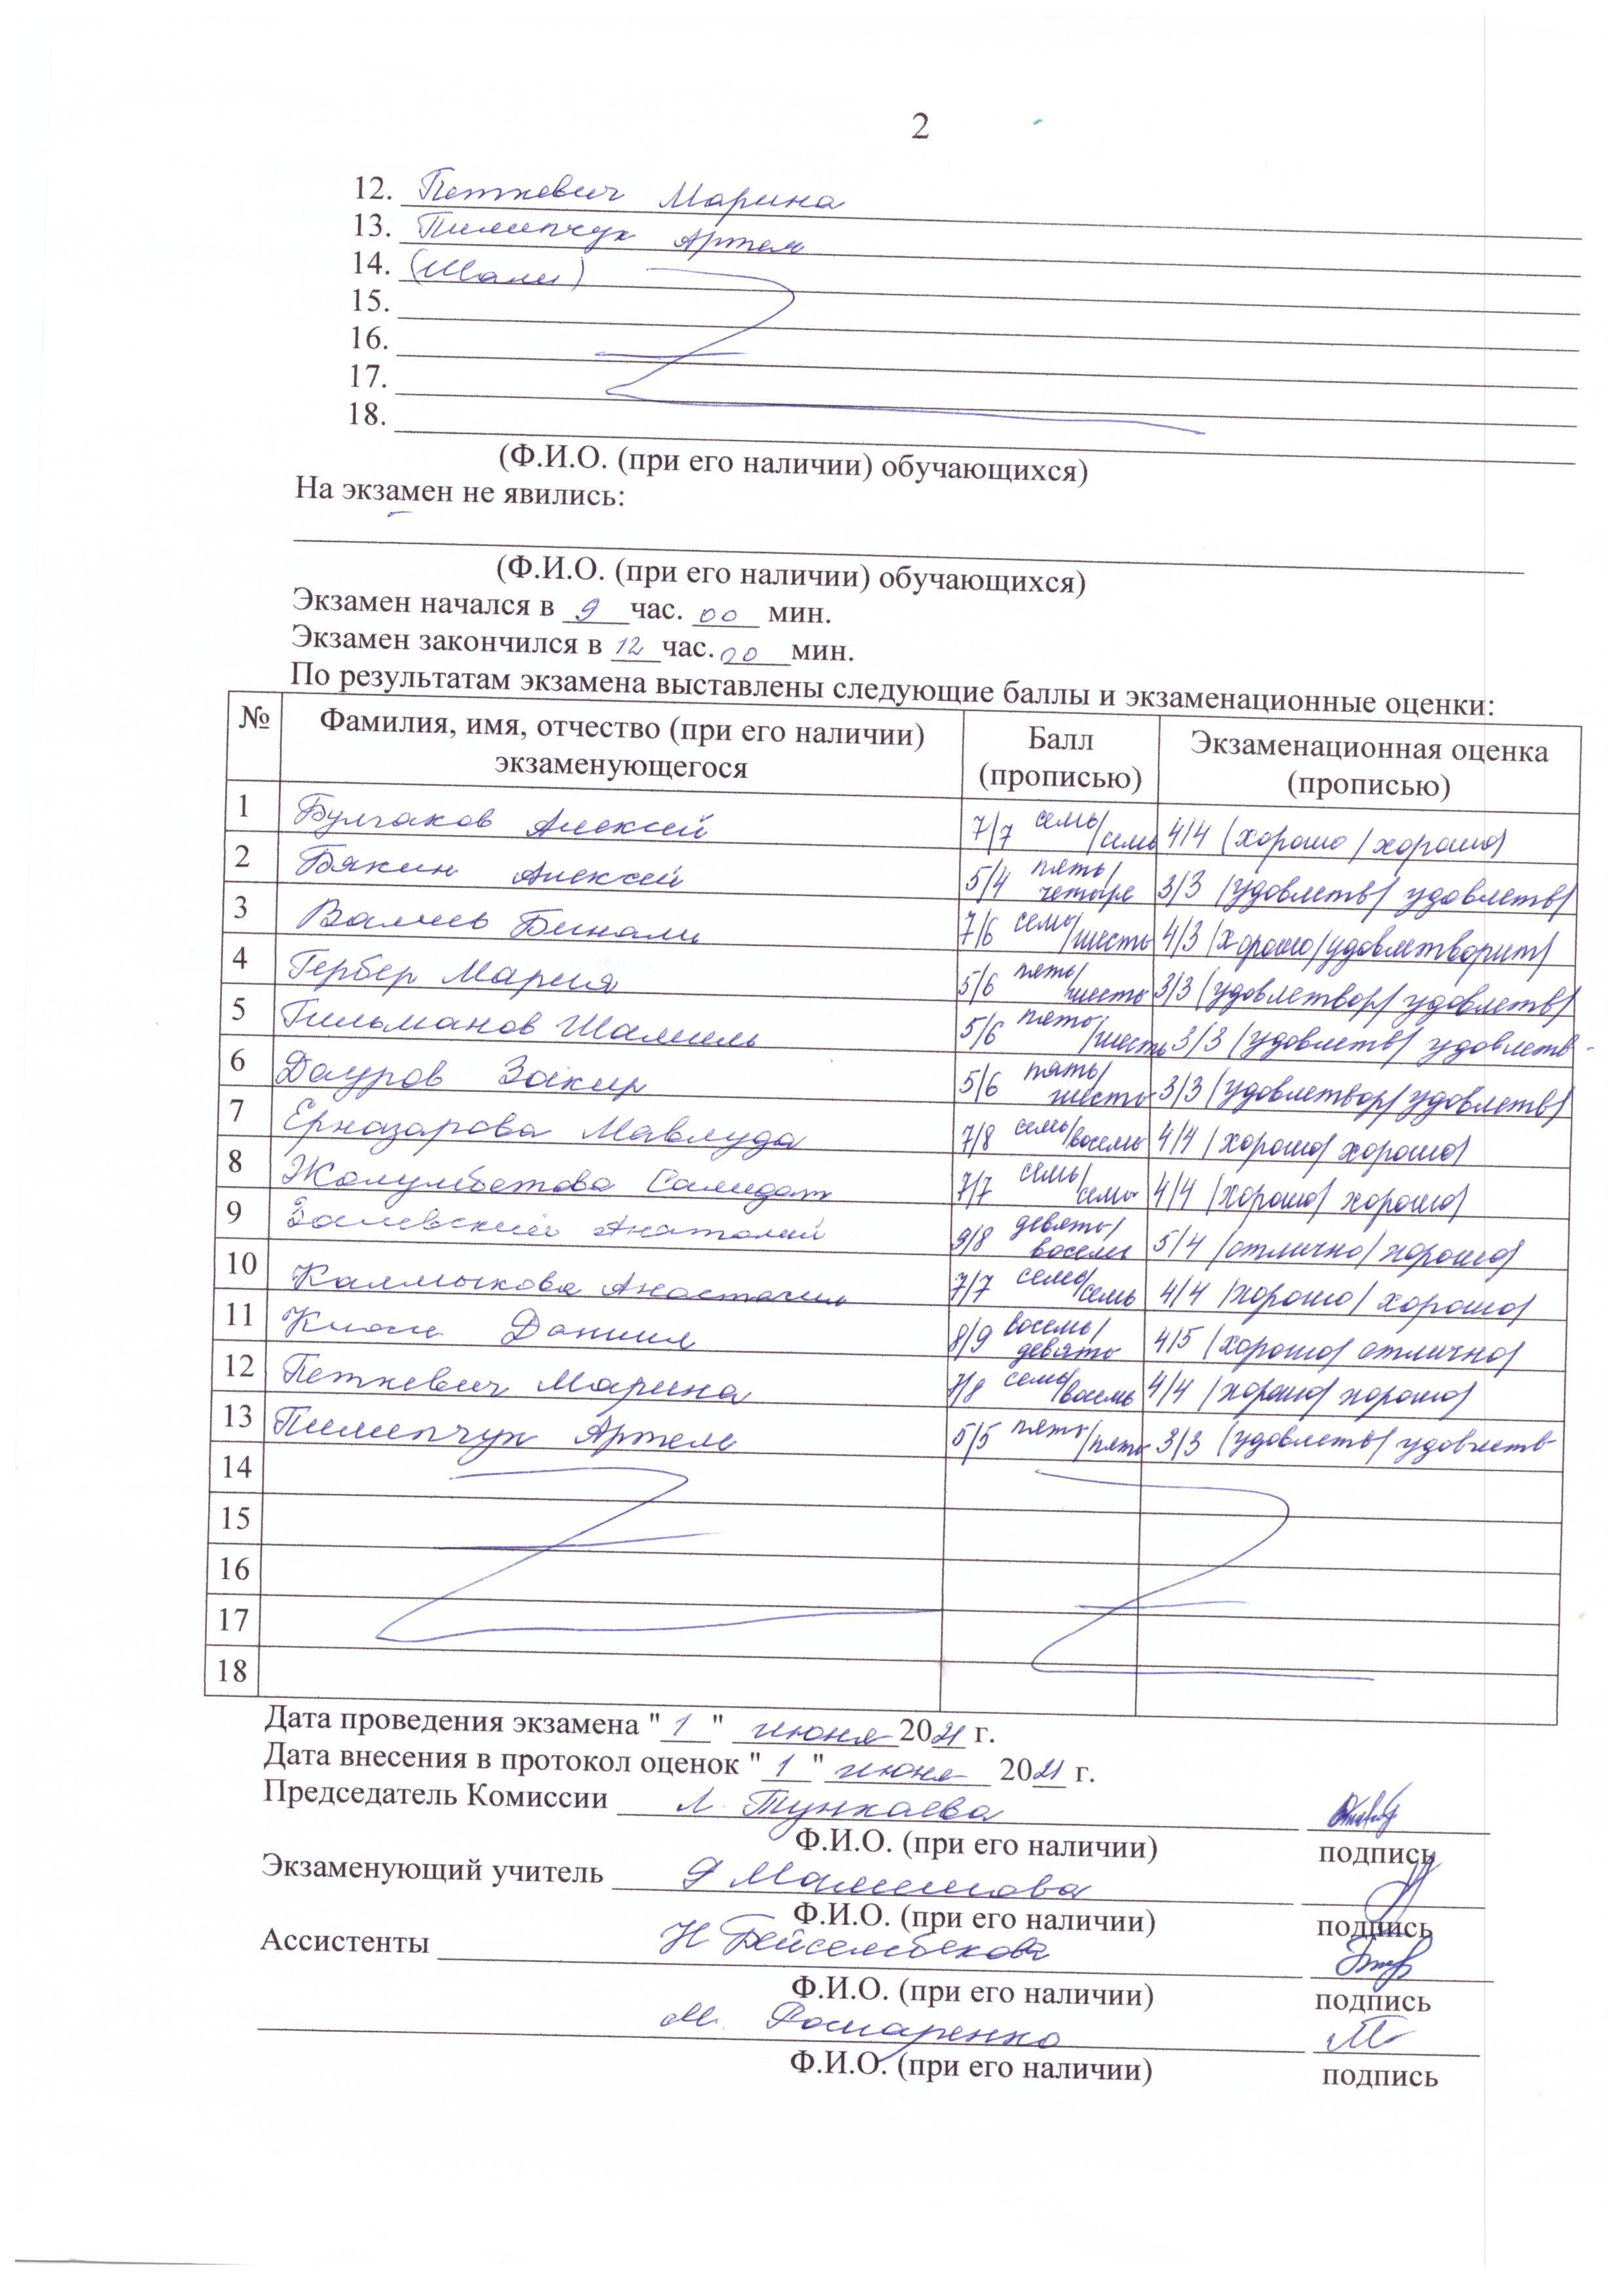 2
12. Петкевич Марина
13. Пилипчук Артем
14.
15.
16.
17.
18.
(Ф.И.О. (при его наличии) обучающихся)
На экзамен не явились:
(Ф.И.О. (при его наличии) обучающихся)
Экзамен начался в 9 час. 00 мин.
Экзамен закончился в 12 час. 00 мин.
По результатам экзамена выставлены следующие баллы и экзаменационные оценки:
№ Фамилия, имя, отчество (при его наличии) экзаменующегося Балл (прописью) Экзаменационная оценка (прописью)
1 Булгаков Алексей 7/7 семь/семь 4/4 (хорошо/хорошо)
2 Бякин Алексей 5/4 пять/четыре 3/3 (удовлетв/ удовлетв)
3 Валиев Бинали 7/6 семь/шесть 4/3 (хорошо/удовлетворит)
4 Гербер Мария 5/6 пять/шесть 3/3 (удовлетвор/ удовлетв)
5 Гильманов Шамиль 5/6 пять/шесть 3/3 (удовлетв/ удовлетв
6 Дауров Закир 5/6 пять/шесть 3/3 (удовлетвор/удовлетв)
7 Ерназарова Мавлуда 7/8 семь/восемь 4/4 (хорошо/ хорошо)
8 Жолумбетова 7/7 семь/семь 4/4 (хорошо/ хорошо)
9 Залевский Анатолий 9/8 девять/восемь 5/4 (отлично/ хорошо)
10 Калмыкова Анастасия 7/7 семь/семь 4/4 (хорошо/ хорошо)
11 Даниил 8/9 восемь/девять 4/5 (хорошо/ отлично)
12 Петкевич Марина 7/8 семь/восемь 4/4 (хорошо/ хорошо)
13 Пилипчук Артем 5/5 пять/пять 3/3 (удовлетв/ удовлетв
14
15
16
17
18
Дата проведения экзамена "1" июня 2021 г.
Дата внесения в протокол оценок "1" июня 2021 г.
Председатель Комиссии Л. Тункаева
Ф.И.О. (при его наличии) подпись
Экзаменующий учитель
Ф.И.О. (при его наличии) подпись
Ассистенты Н Бейсембекова
Ф.И.О. (при его наличии) подпись
М.
Ф.И.О. (при его наличии) подпись